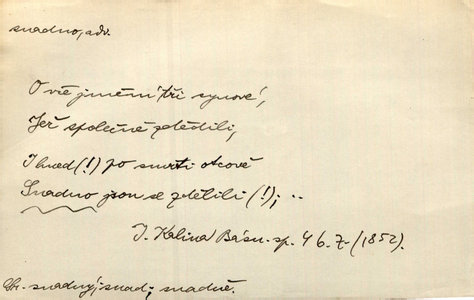 snadno, adv.
O vše jmění tři synové,
Jež společně zdědili,
Ihned (!) po smrti otcově
Snadno jsou se zdělili (!); ..
J. Kalina Básn. sp. 46. Z. (1852).
snadný; snad; snadně.